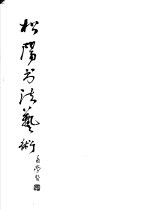 松陽书法藝術